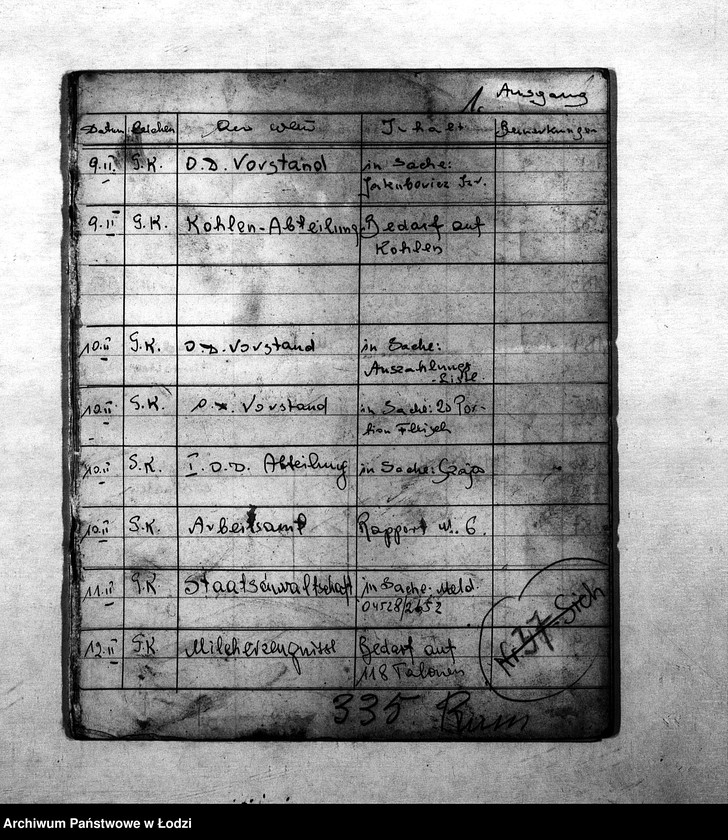 1. Ausgang
Datum Zeichen An wen Inhalt Bemerkungen
9.II G.K. O.D. Vorstand in Sache:
Jakubowicz Szr.
9.II G.K. Kohlen-Abteilung Bedarf auf
Kohlen
10.II G.K. O.D. Vorstand in Sache:
Auszahlungs
-Liste.
10.II G.K. O.D. Vorstand in Sache: 20 Por-
tion Fleisch
10.II G.K. I. O.D. Abteilung in Sache:
10.II G.K. Arbeitsamt Rapport N. 6.
11.II G.K. Staatsanwaltschaft in Sache: Meld.
04528/2652
12.II G.K. Milcherzeugnisse Bedarf auf
118 Talonen
Nr. 37
335
Archiwum Państwowe w Łodzi